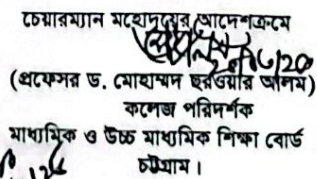 চেয়ারম্যান মহোদয়ের আদেশক্রমে
(প্রফেসর ড. মোহাম্মদ ছরওয়ার আলম)
কলেজ পরিদর্শক
মাধ্যমিক ও উচ্চ মাধ্যমিক শিক্ষা বোর্ড
চট্টগ্রাম।